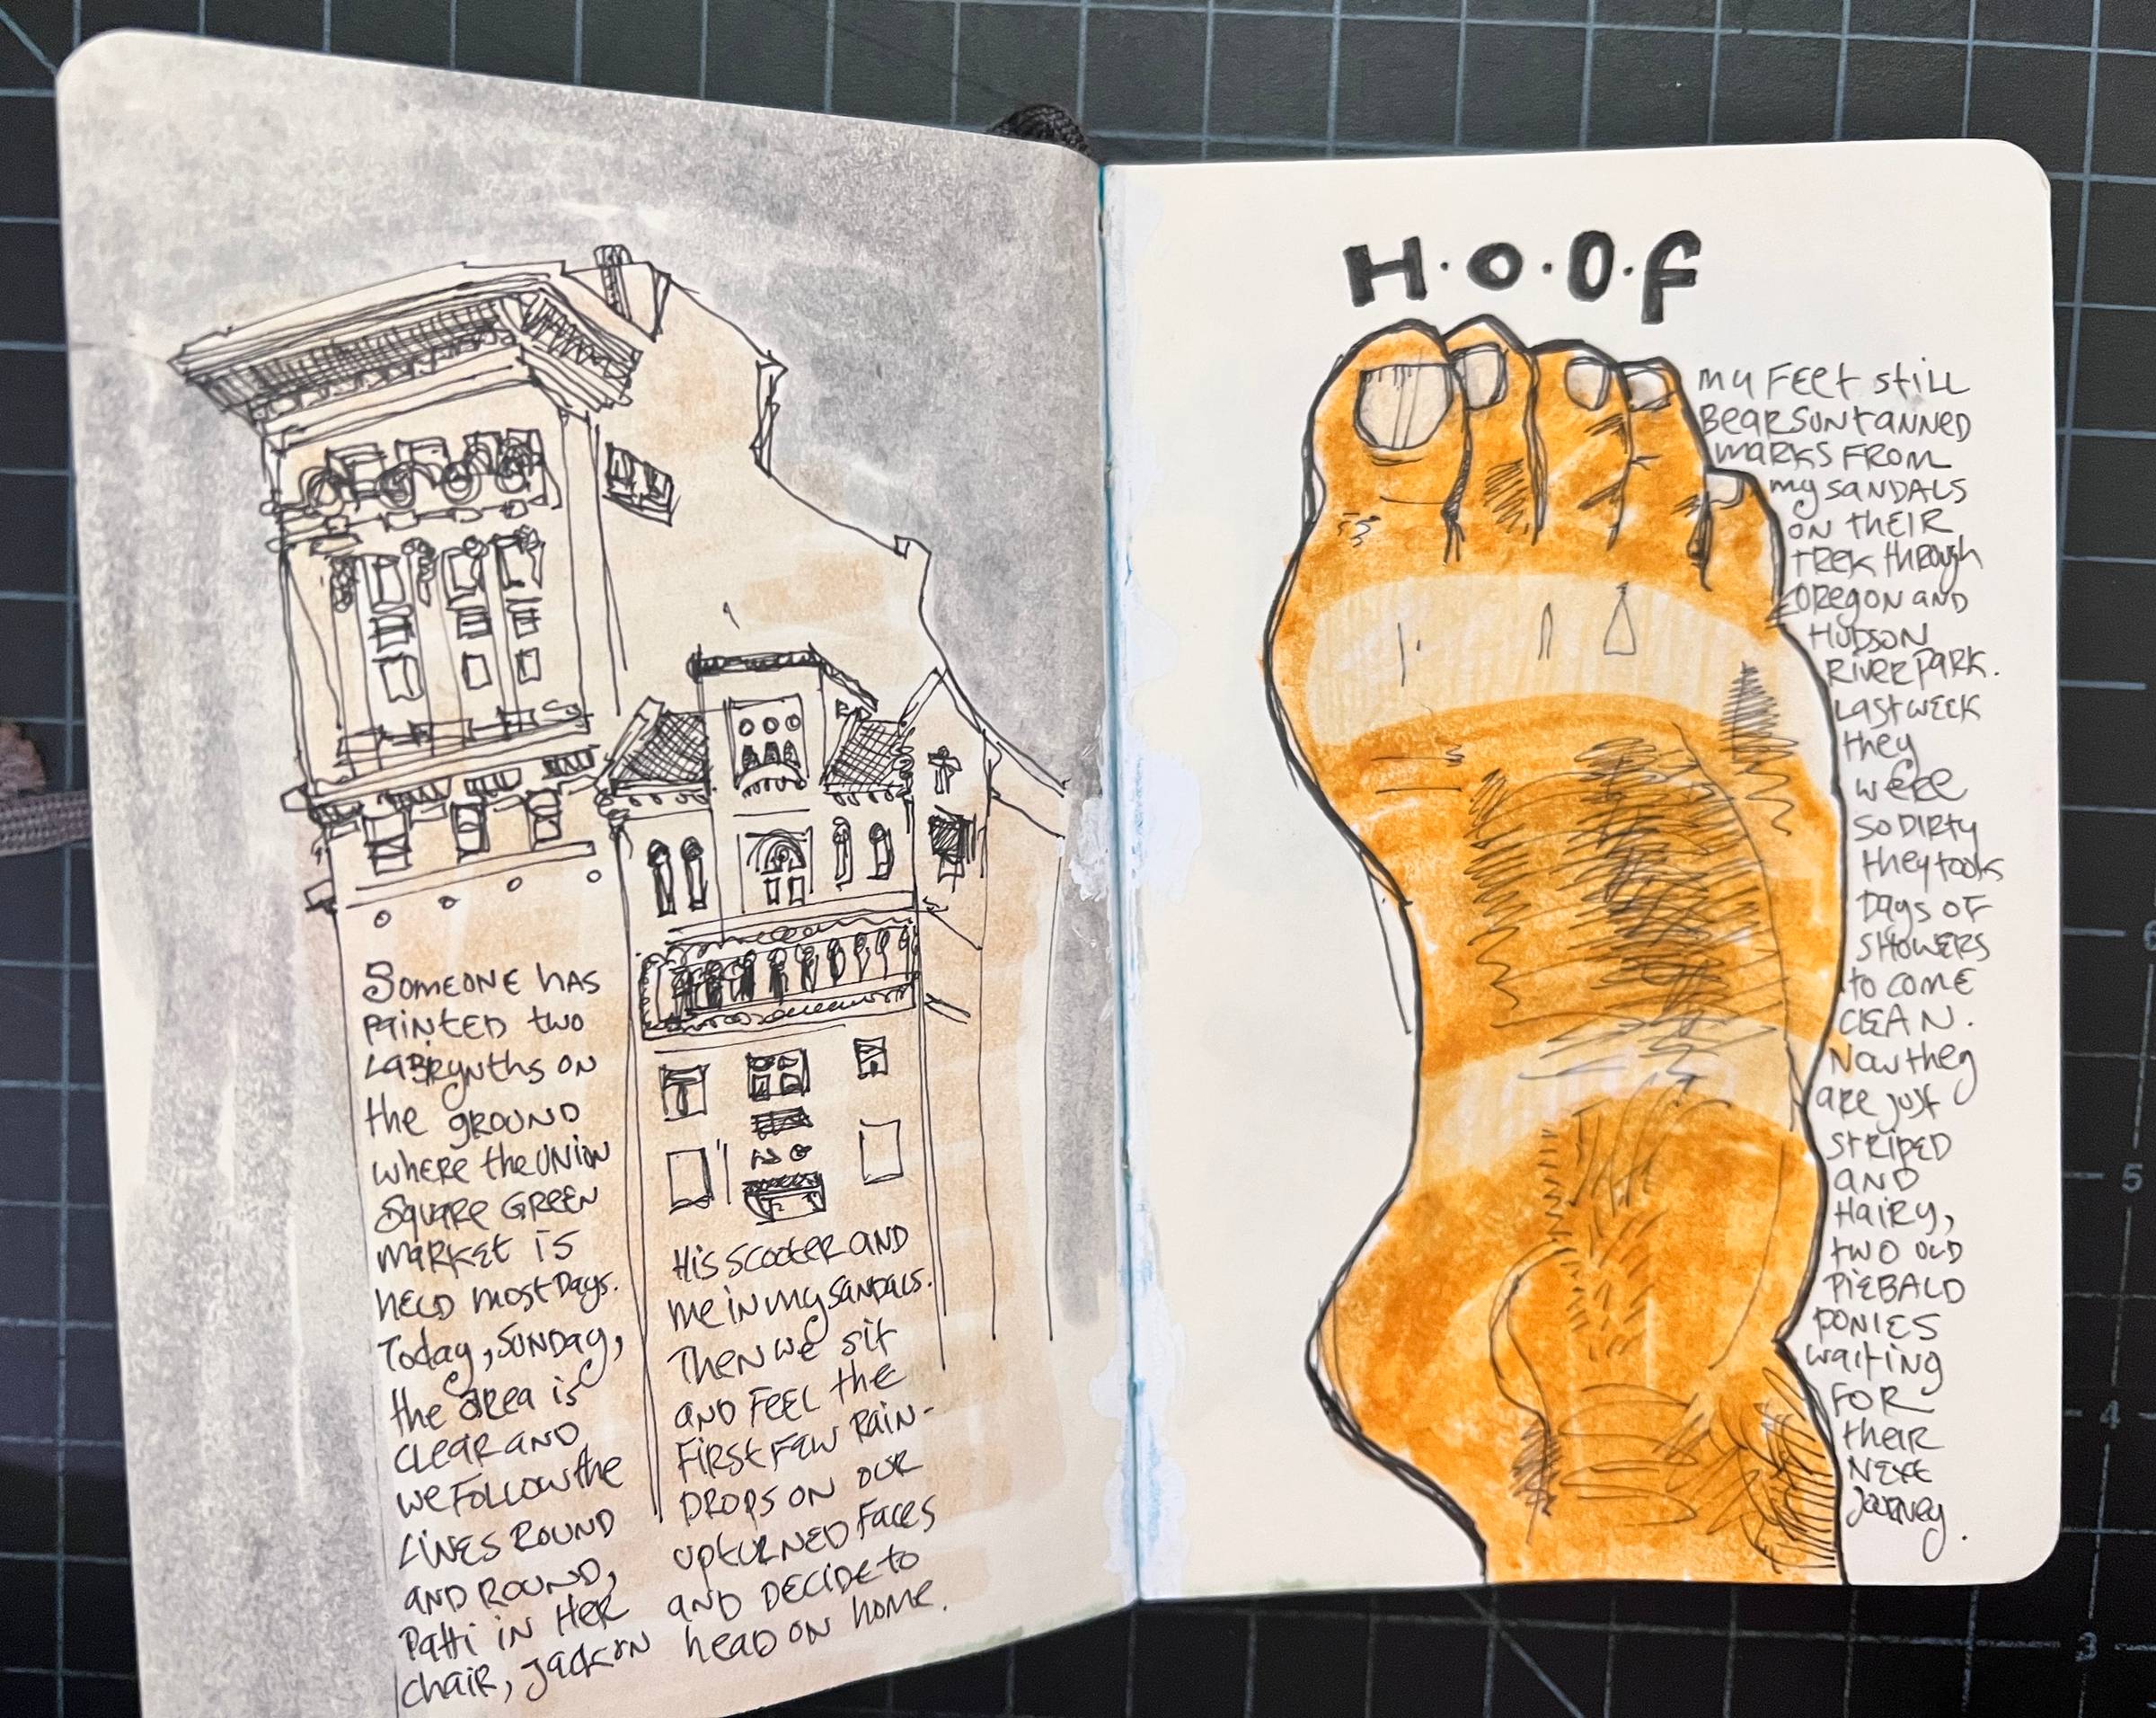 Someone has
painted two
Labrynths on
the ground
where the Union
Square Green
market is
held most days.
Today, Sunday,
the area is
clear and
we follow the
lines round
and round,
Patti in her
chair, Jackson
his scooter and
me in my sandals.
Then we sit
and feel the
first few rain-
drops on our
upturned faces
and decide to
head on home.
H.O.O.F
my feet still
bear suntanned
marks from
my sandals
on their
trek through
Oregon and
Hudson
River Park.
Last week
they
were
so dirty
they took
days of
showers
to come
clean.
Now they
are just
striped
and
hairy,
two old
piebald
ponies
waiting
for
their
next
journey.
6
5
4
3